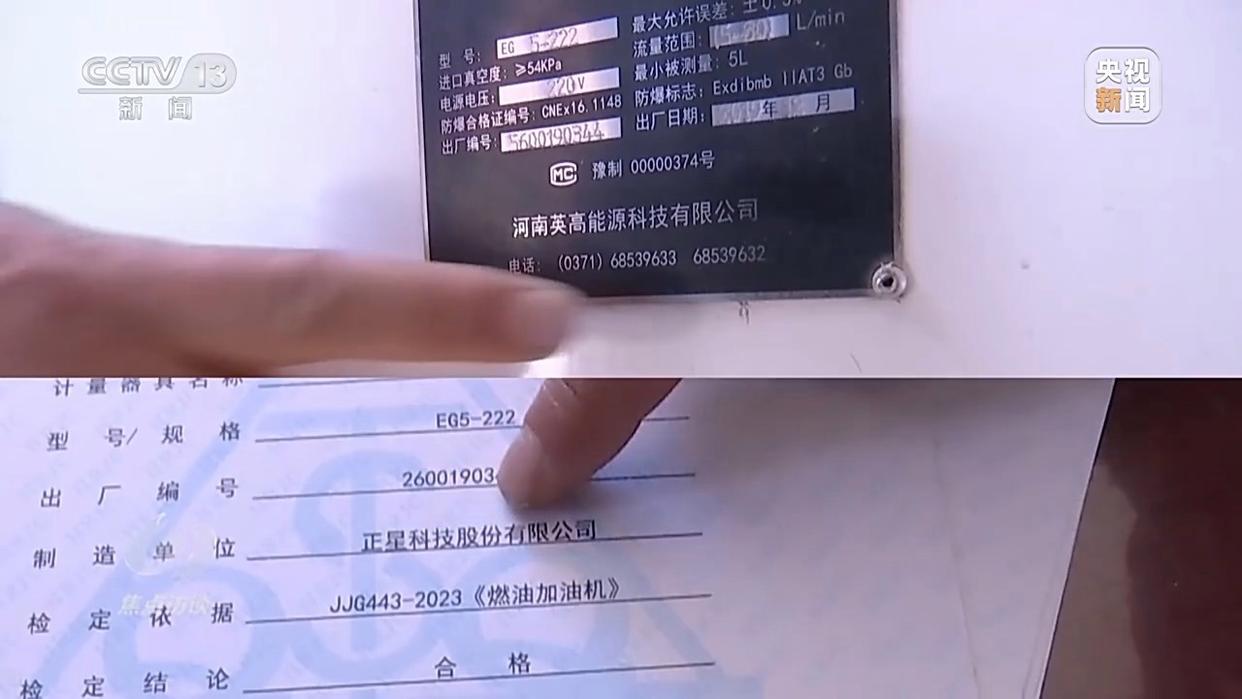 CCTV 13
新闻
央视
新闻
最大允许误差: ±0.3%
型 号: EG 5-222
流量范围: (5-80) L/min
进口真空度: ≥54KPa
最小被测量: 5L
电源电压: 220V
防爆标志: Exdibmb IIAT3 Gb
防爆合格证编号: CNEx16.1148
出厂日期: 年 月
出厂编号: 5600190344
MC 豫制 00000374号
河南英高能源科技有限公司
电话: (0371) 68539633 68539632
计量器具名称
型号/规格 EG5-222
出厂编号 26001903
制造单位 正星科技股份有限公司
焦点访谈
检定依据 JJG443-2023《燃油加油机》
检定结论 合格